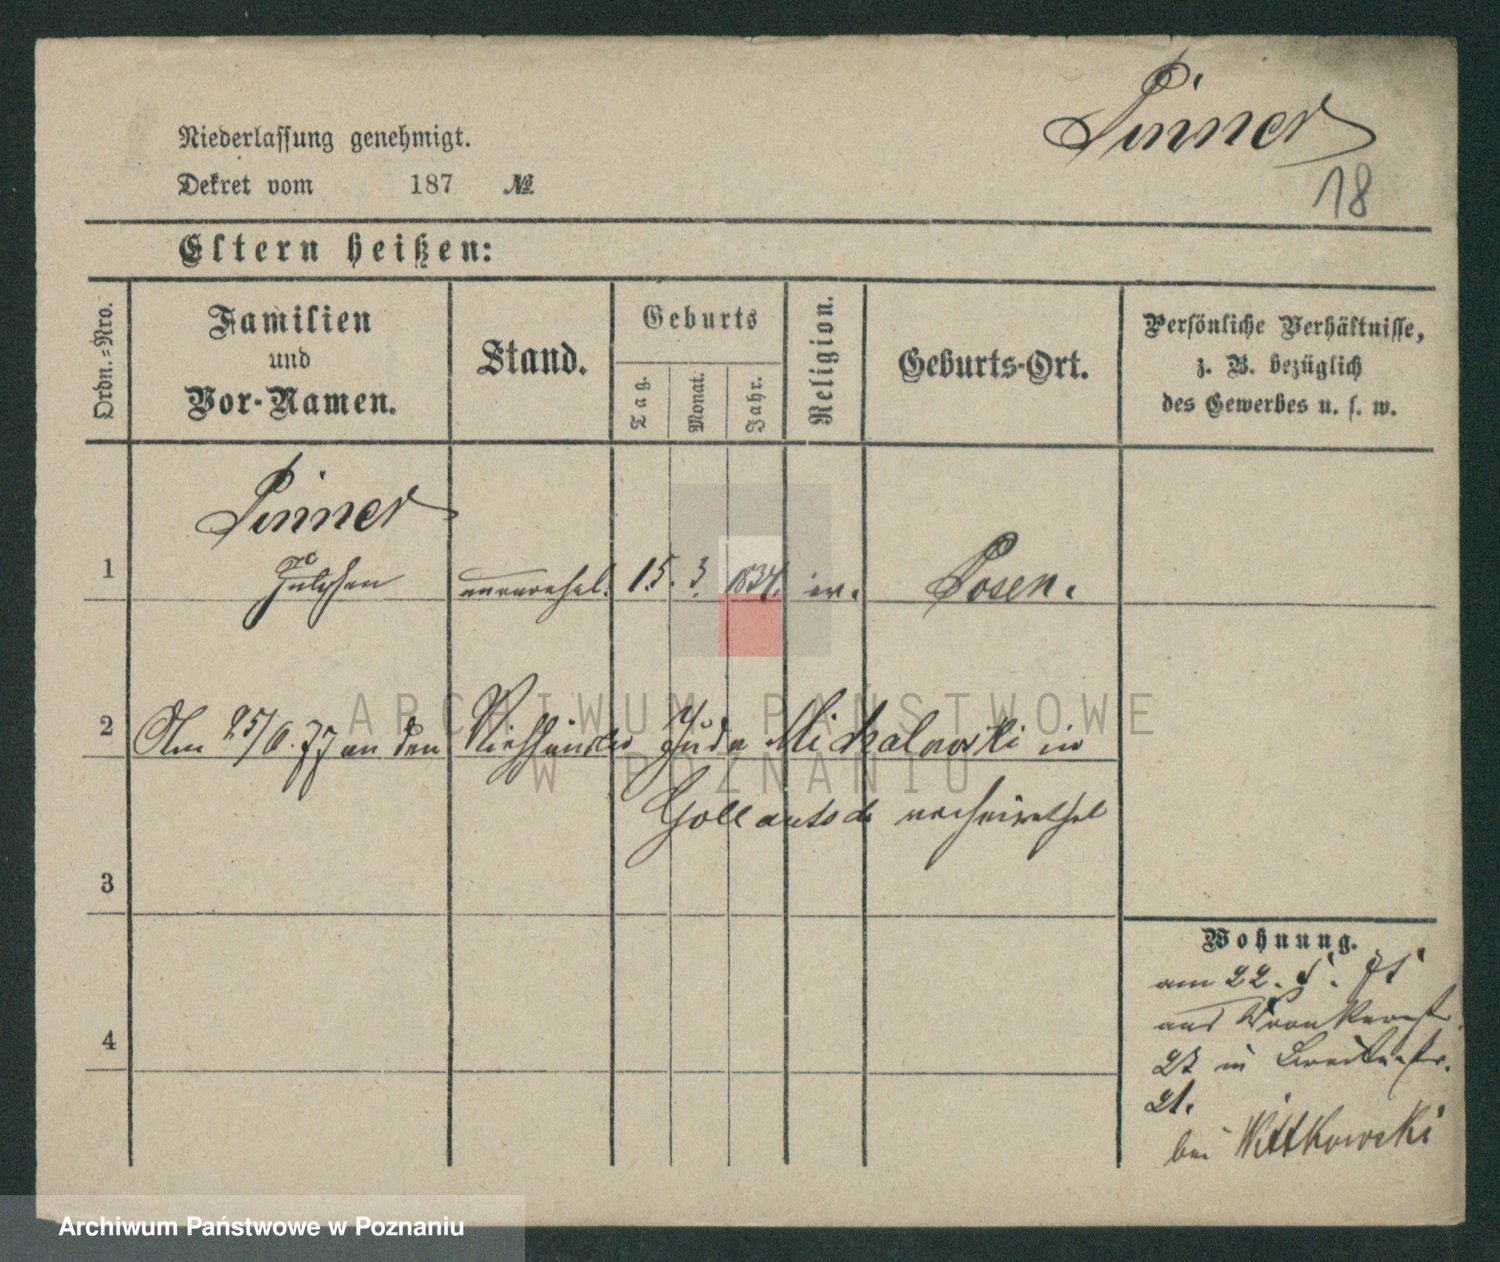 Pinner
18
Niederlassung genehmigt.
Dekret vom 187 №
Eltern heißen:
Ordn.-Nro.
Familien
und
Vor-Namen.
Stand.
Geburts
Tag.
Monat.
Jahr.
Religion.
Geburts-Ort.
Persönliche Verhältnisse,
z. B. bezüglich
des Gewerbes u. s. w.
Pinner
1 unverehel. 15. 3. 1834. Posen.
2 Am 25/6. 77 an den Viehhändler Juda Michalowski in
Gollantsch verheirathet
3
4
Wohnung.
am 22. 5. 71
aus Wronkerstr.
in Breitestr.
21.
bei Wittkowski
ARCHIWUM PAŃSTWOWE
W POZNANIU
Archiwum Państwowe w Poznaniu